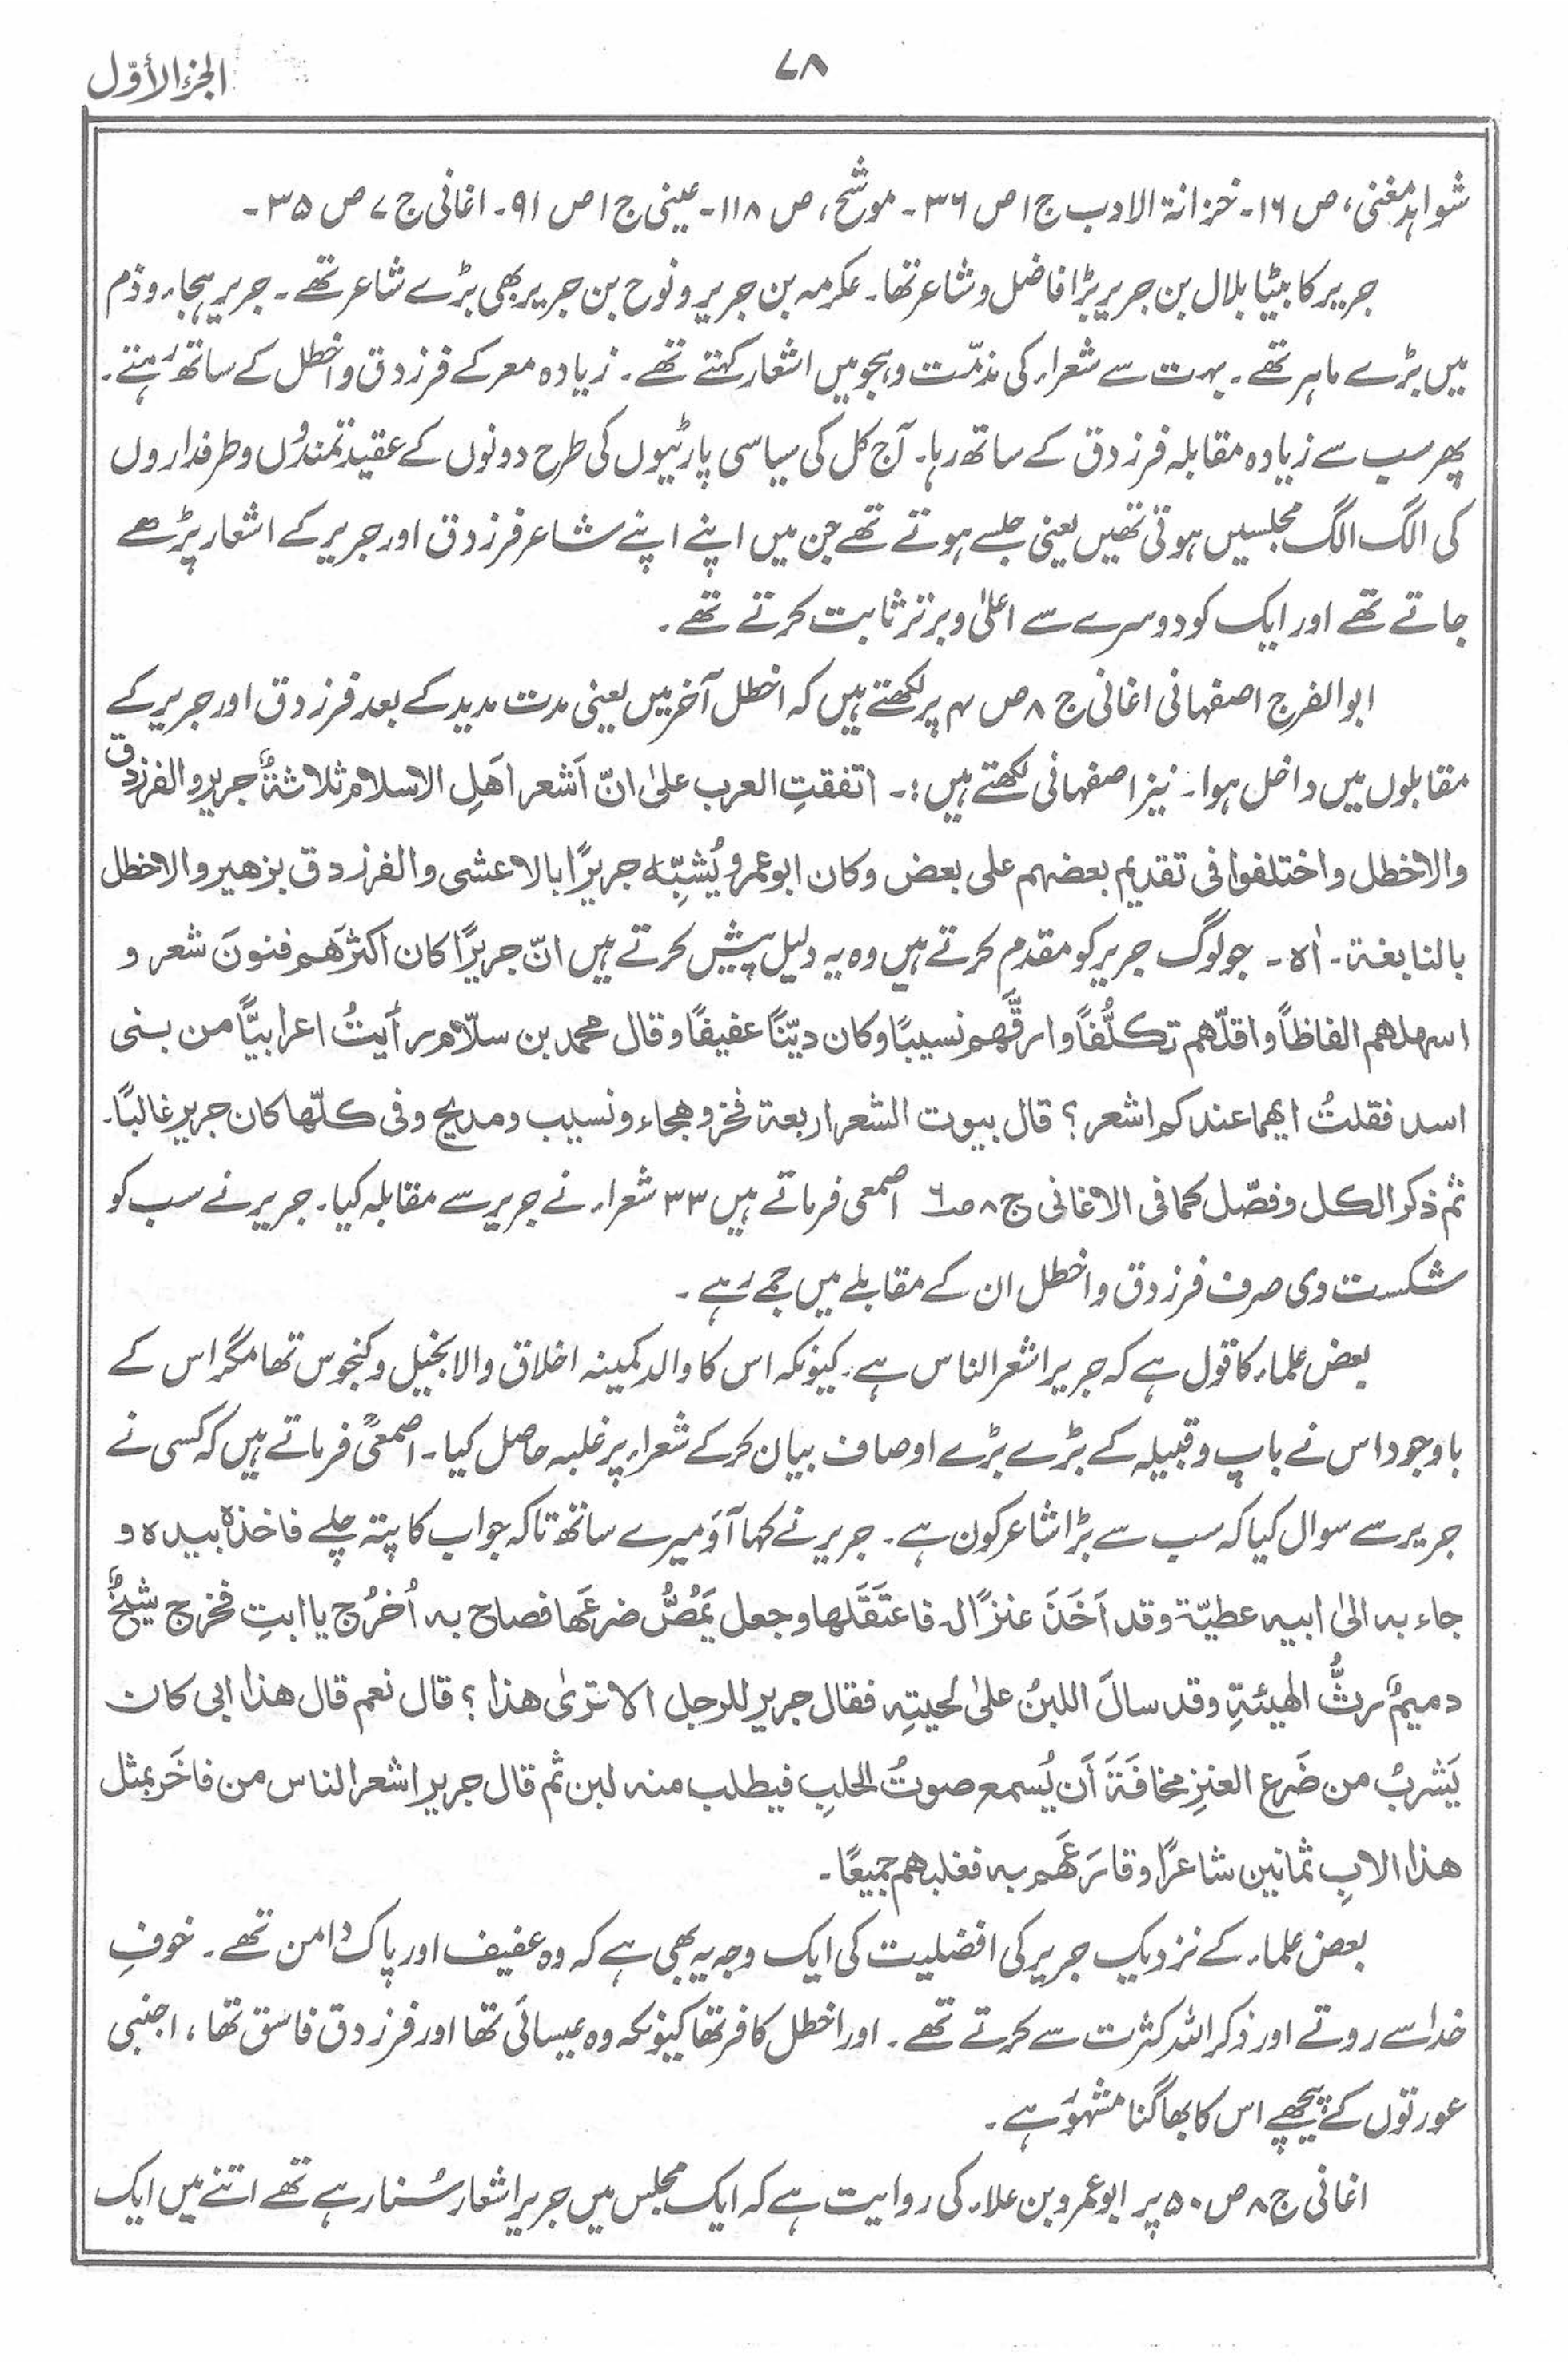 الجزء الأوّل
۷۸
شواہد مغنی، ص ۱۶۔ خزانۃ الادب ج ۱ ص ۳۶۔ موشح، ص ۱۱۸۔ عینی ج ۱ ص ۹۱۔ اغانی ج ۷ ص ۳۵۔
جریر کا بیٹا بلال بن جریر بڑا فاضل و شاعر تھا۔ عکرمہ بن جریر و نوح بن جریر بھی بڑے شاعر تھے۔ جریر ہجاء و ذم
میں بڑے ماہر تھے۔ بہت سے شعراء کی مذمّت و ہجو میں اشعار کہتے تھے۔ زیادہ معرکے فرزدق و اخطل کے ساتھ رہتے۔
پھر سب سے زیادہ مقابلہ فرزدق کے ساتھ رہا۔ آج کل کی سیاسی پارٹیوں کی طرح دونوں کے عقیدتمندوں و طرفداروں
کی الگ الگ مجلسیں ہوتی تھیں یعنی جلسے ہوتے تھے جن میں اپنے اپنے شاعر فرزدق اور جریر کے اشعار پڑھے
جاتے تھے اور ایک کو دوسرے سے اعلیٰ و برتر ثابت کرتے تھے۔
ابو الفرج اصفہانی اغانی ج ۸ ص ۴ پر لکھتے ہیں کہ اخطل آخر میں یعنی مدت مدید کے بعد فرزدق اور جریر کے
مقابلوں میں داخل ہوا۔ نیز اصفہانی لکھتے ہیں:۔ اتفقتِ العرب علیٰ انّ اَشعر اَھلِ الاسلام ثلاثۃٌ جریر و الفرزدق
والاخطل واختلفوا فی تقدیم بعضہم علی بعض وکان ابوعمرو یُشبِّہ جریرًا بالاعشی والفرزدق بزھیر والاخطل
بالنابغۃ۔ اٰہ۔ جو لوگ جریر کو مقدم کرتے ہیں وہ یہ دلیل پیش کرتے ہیں انّ جریرًا کان اکثرَھم فنونَ شعر و
اسہلھم الفاظاً واقلّھم تکلُّفاً وارقَّھم نسیبًا وکان دیّنًا عفیفًا وقال محمد بن سلّام رأیتُ اعرابیًّا من بنی
اسد فقلتُ ایھما عندکم اشعر؟ قال بیوت الشعر اربعۃ فخر وھجاء ونسیب ومدیح وفی کلّھا کان جریر غالبًا۔
ثم ذکر الکل وفصّل کما فی الاغانی ج ۸ صـ۶ اصمعی فرماتے ہیں ۳۳ شعراء نے جریر سے مقابلہ کیا۔ جریر نے سب کو
شکست دی صرف فرزدق و اخطل ان کے مقابلے میں جمے رہے۔
بعض علماء کا قول ہے کہ جریر اشعر الناس ہے۔ کیونکہ اس کا والد کمینہ اخلاق والا بخیل و کنجوس تھا مگر اس کے
باوجود اس نے باپ و قبیلہ کے بڑے بڑے اوصاف بیان کرکے شعراء پر غلبہ حاصل کیا۔ اصمعیؒ فرماتے ہیں کہ کسی نے
جریر سے سوال کیا کہ سب سے بڑا شاعر کون ہے۔ جریر نے کہا آؤ میرے ساتھ تاکہ جواب کا پتہ چلے فاخذہٗ بیدہ و
جاء بہ الیٰ ابیہ عطیّۃ وقد اَخَذَ عنزًا لہ فاعتَقَلھا وجعل یَمُصُّ ضرعَھا فصاح بہ اُخرُج یا ابتِ فخرج شیخٌ
دمیمٌ رثُّ الھیئۃِ وقد سالَ اللبنُ علیٰ لحیتِہ فقال جریر للرجل الا تریٰ ھذا؟ قال نعم قال ھذا ابی کان
یَشربُ من ضَرع العنزِ مخافَۃَ اَن یُسمع صوتُ الحلبِ فیطلب منہ لبن ثم قال جریر اشعر الناس من فاخَر بمثل
ھذا الابِ ثمانین شاعرًا وقارَعَھم بہ فغلبھم جمیعًا۔
بعض علماء کے نزدیک جریر کی افضلیت کی ایک وجہ یہ بھی ہے کہ وہ عفیف اور پاک دامن تھے۔ خوفِ
خدا سے روتے اور ذکر اللہ کثرت سے کرتے تھے۔ اور اخطل کافر تھا کیونکہ وہ عیسائی تھا اور فرزدق فاسق تھا، اجنبی
عورتوں کے پیچھے اس کا بھاگنا مشہور ہے۔
اغانی ج ۸ ص ۵۰ پر ابوعمرو بن علاء کی روایت ہے کہ ایک مجلس میں جریر اشعار سُنا رہے تھے اتنے میں ایک